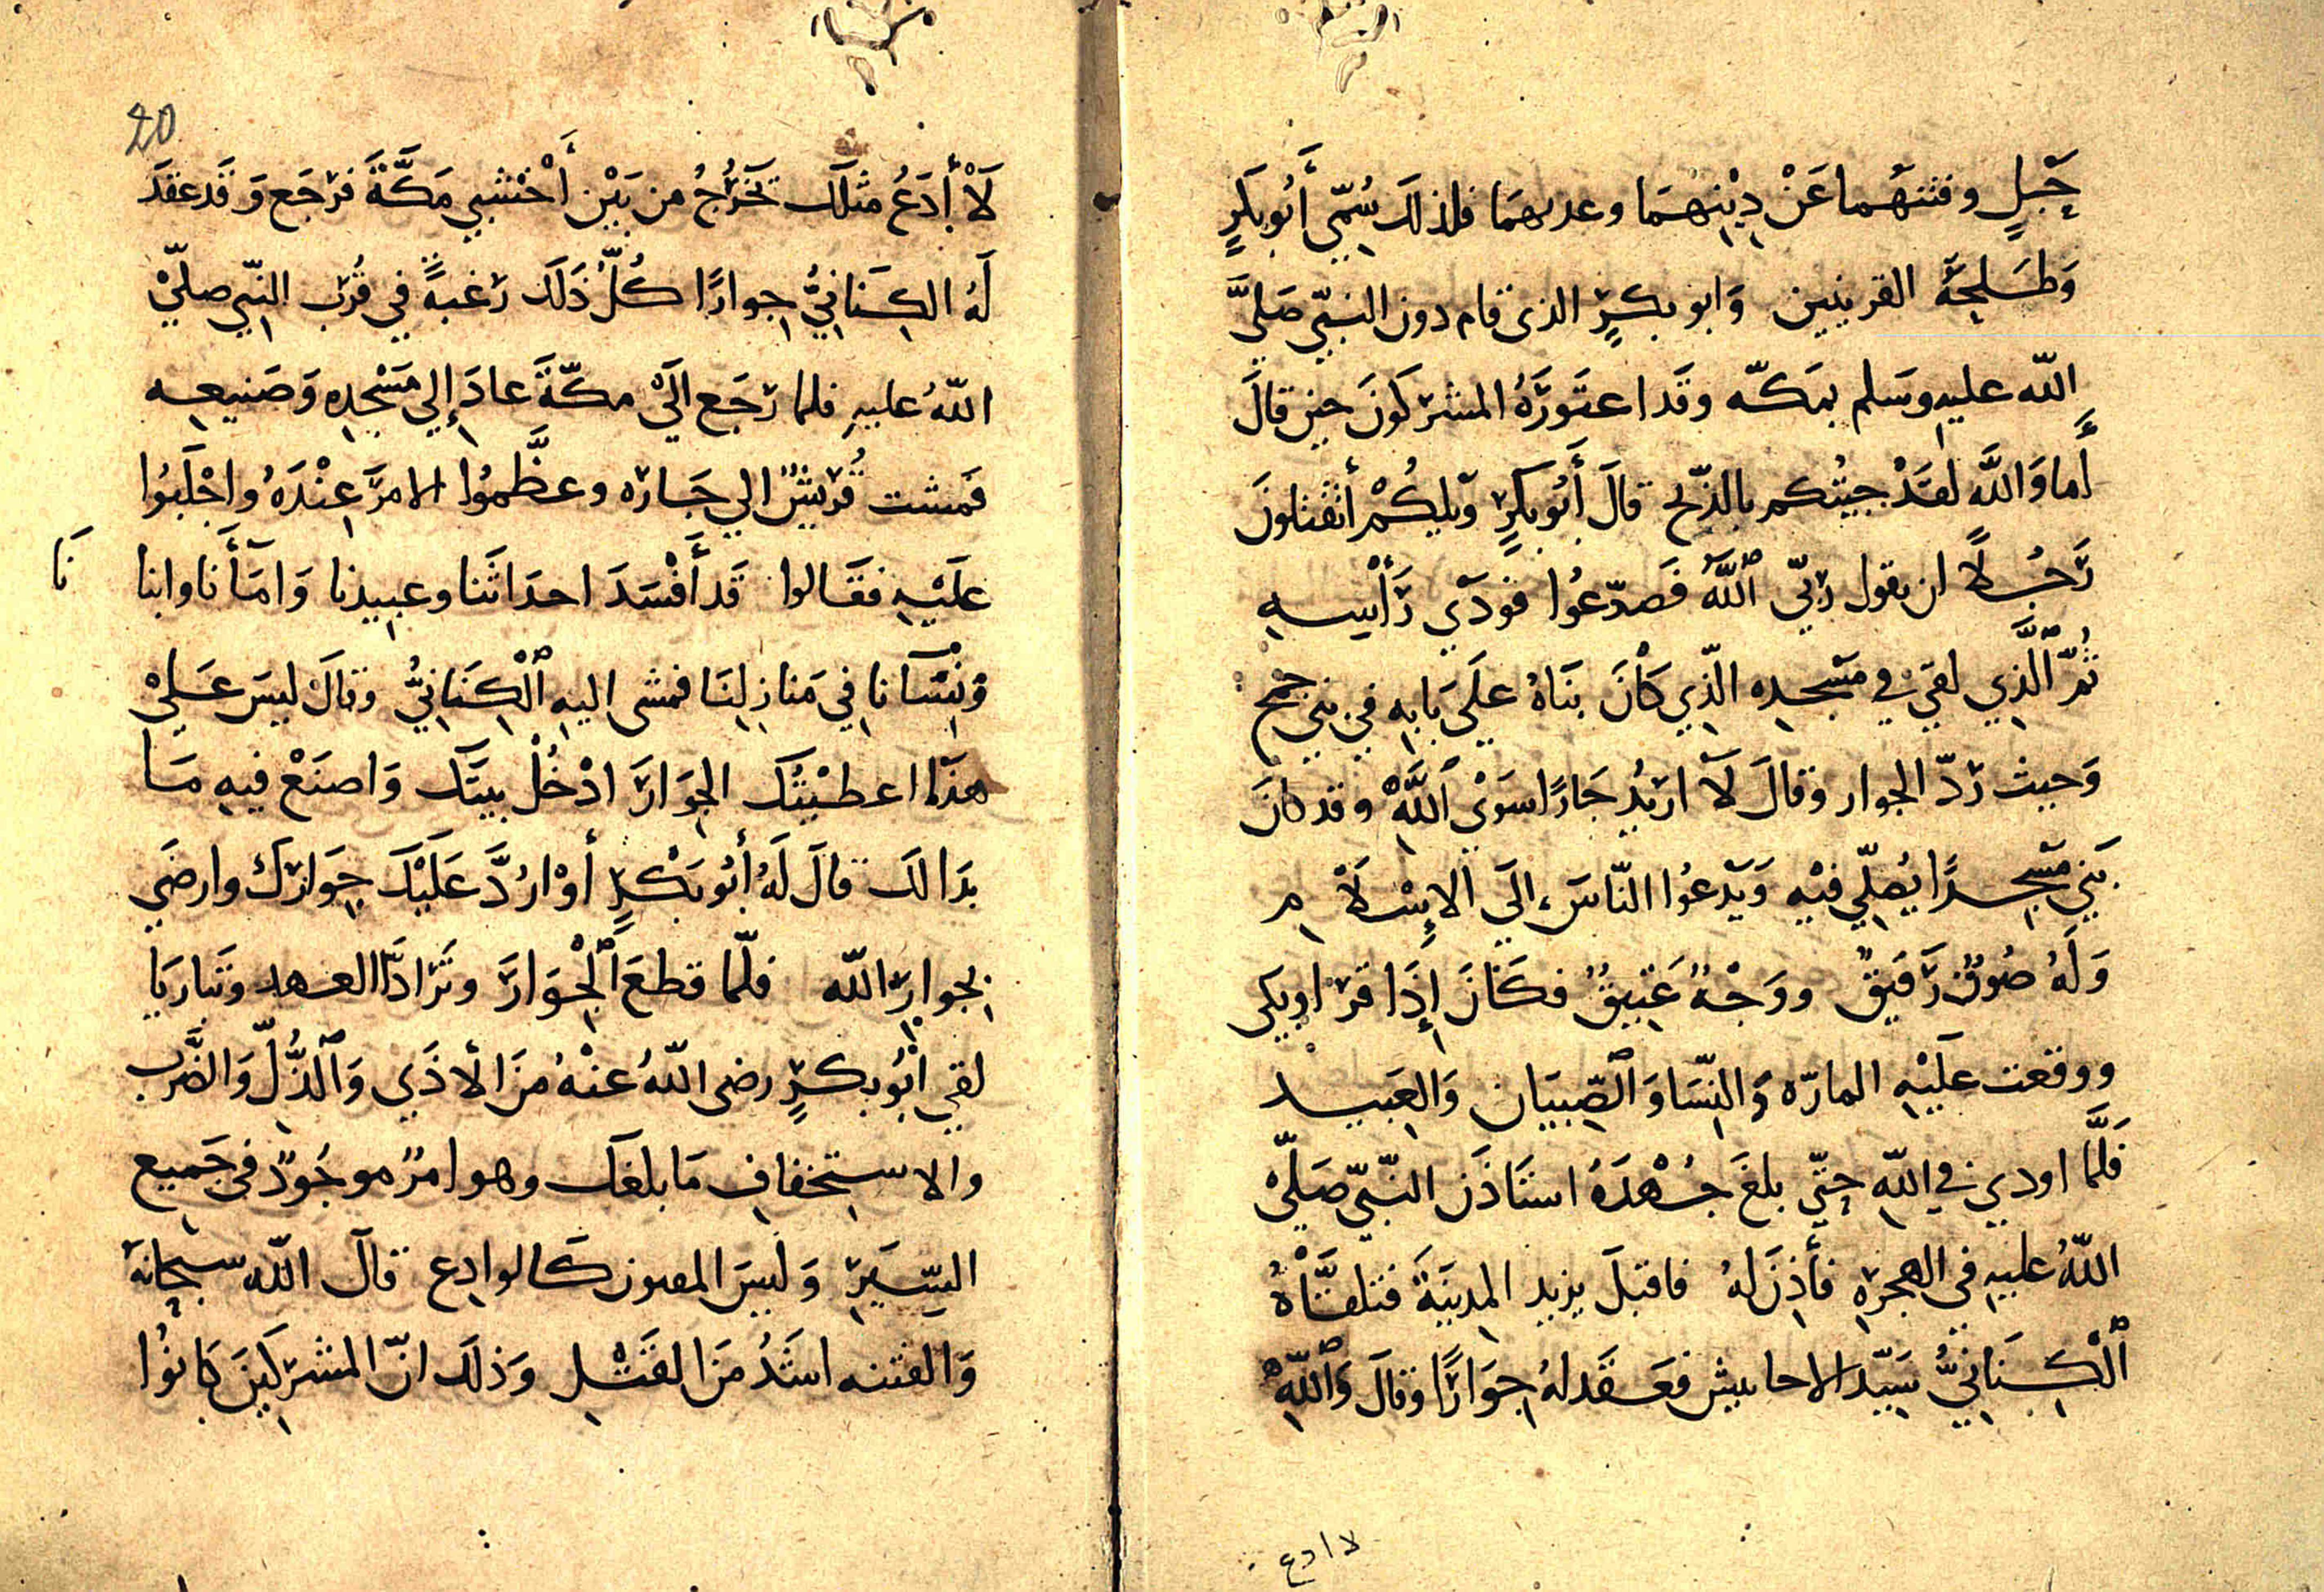 حَبْلٍ وفتنهُما عَنْ دِيْنِهِمَا وعدبهمَا فلذلكَ سُمِّي أَبُو بَكرٍ
وَطَلحَةَ القرينين وَابو بكرٍ الذى قام دون النبِّي صَلىَّ
اللّه عليهِ وسَلم بمَكّه وقَد اعتَوَرَهُ المشركونَ حين قالَ
أَما وَاللَّه لقَدْ جيتُكم بالذّبح قالَ أَبُو بكَرٍ وَيلَكُمْ أتقتلونَ
رَجُلاً ان يقول رَبّي ٱللَّهُ فَصدّعُوا فودَي رَأسِه
ثُمَّ الَّذِي لقيَ في مَسْجدِه الّذِي كَانَ بنَاهُ علَى بَابِه في بني جمح
وَحيث رَدّ الجوار وَقالَ لَا اريْدُ جَارًا سوَى ٱللَّهِ وقد كانَ
بَنيَ مَسْجدًا يُصَلّي فيْهِ وَيَدعُوا النّاسَ الَى الإِسْلَامِ
وَلَهُ صُوتٌ رَقيقٌ ووَجْهٌ عَتِيقٌ فكَانَ إِذَا قرَا وبكى
ووقعت علَيْهِ المارّه وَالنّسَا وَٱلصِّبيَان وَالعَبيد
فَلَمَّا اودي في اللّه حتّي بلغَ جُهْدَهُ استَاذَن النّبيّ صَلّيْ
اللّهُ عليهِ في الهجرَهِ فأَذِنَ لهُ فاقبَلَ يريد المدِينَةَ فتلقَّاهُ
ٱلْكِنَانِيُّ سَيّد الاحابيش فعَقَد لهُ جِوَارًا وقالَ وَٱللّهِ
لا ادع
20
لَا أَدَعُ مثلَك تخَرُجُ من بَيْن أَخْشبي مَكَّةَ فرَجَع وَقَد عقدَ
لَهُ الكِنَانِيُّ جِوارًا كُلَّ ذَلَك رَغبةً في قُرب النّبي صلّيْ
اللّهُ عليهِ فلما رَجَع الَي مكّةَ عادَ إِلي مَسْجِدِه وَصَنيعِه
فَمشت قُريْشٌ الي جَاره وعظَّموُا الامرَ عِنْدَهُ واجْلَبُوا
علَيْهِ فقَالوا قَد أَفْسَدَ احدَاثَنا وعبيدنا وَامَأَنا وابنا
نَا
وَنِسَآنا في مَنازِلنَا فمشى اليهِ ٱلْكِنَانِيُّ وَقالَ ليسَ عَليْ
هذَا اعطيْتُكَ الجِوَارَ ادْخُلْ بيتَك وَاصنَعْ فيهِ مَا
بدَا لكَ قالَ لَهُ أَبُو بَكْرٍ أَوْ ارُدَّ عَلَيْكَ جِوَارَكَ وارضَي
بجوارِ اللّه فلّما قطعَ ٱلْجِوَارَ وتَرَادَّا العهد وتَباريَا
لقي ابُو بكرٍ رضى اللّهُ عنْهُ مِنَ الأذَي وَٱلذُّلِّ وَالضَّرب
والاستِخفافِ مَا بلغَك وهو امرٌ موجُودٌ في جَميع
السِّيَرِ وَليسَ المفتون كَالوادِع قالَ اللّه سبحَانهُ
وَالفتنه اشَدُ مِنَ القَتْلِ وَذلَك انّ المشرِكينَ كَانُوا